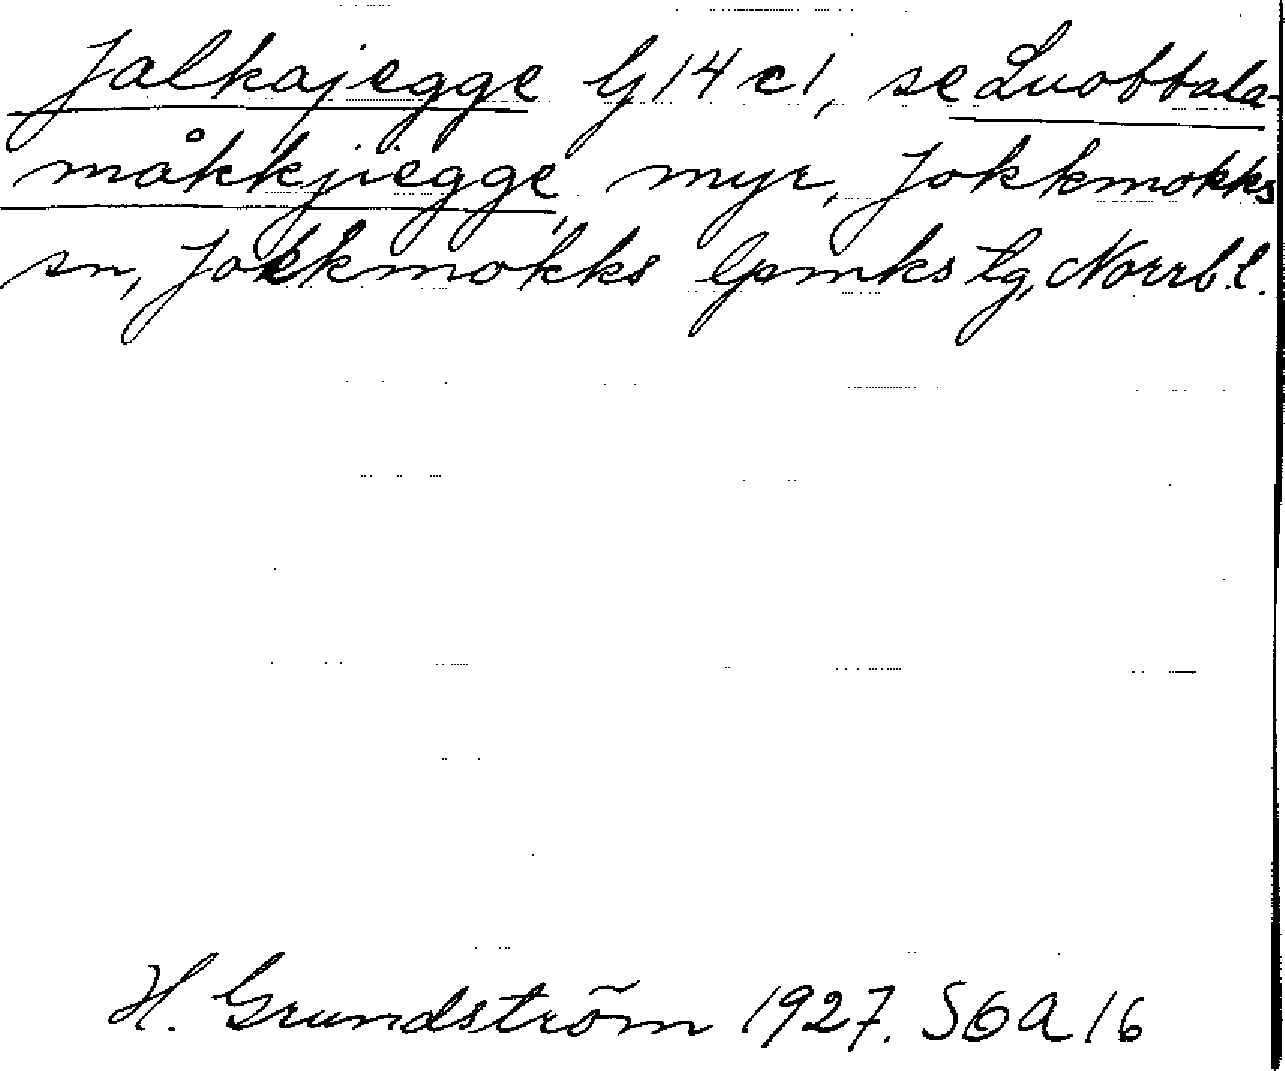 Jalkajegge G 14 c 1, se Luobbala-
måkkjiegge, myr, Jokkmokks
sn, Jokkmokks lpmks tg, Norrb. l.
H. Grundström 1927. SOA 16